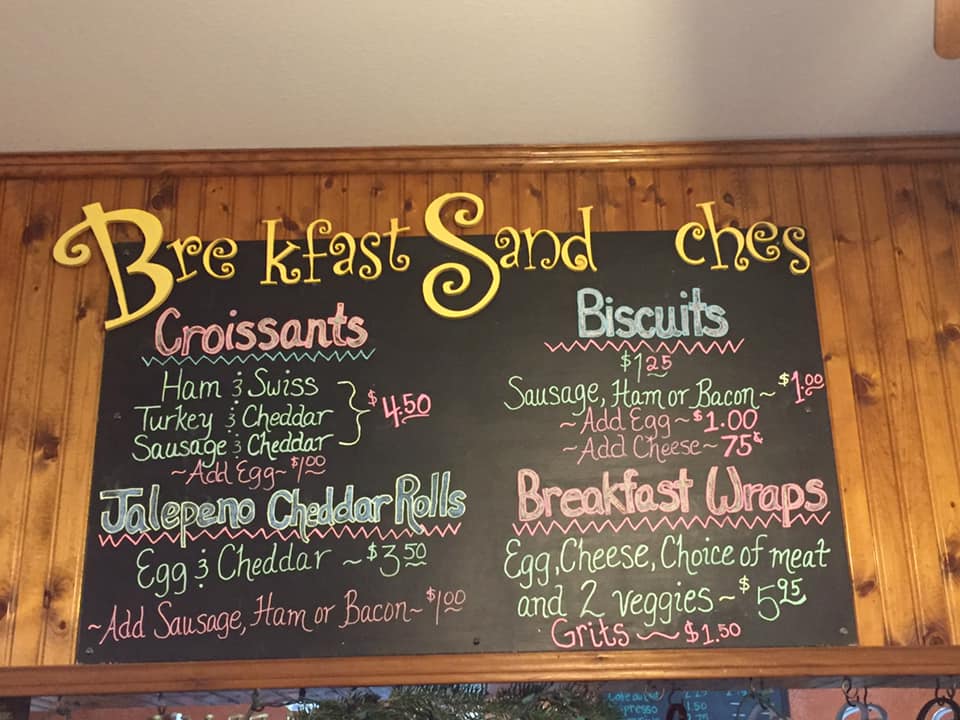 Bre kfast Sand ches
Croissants
Ham & Swiss
Turkey & Cheddar
Sausage & Cheddar
$4.50
~Add Egg~$1.00
Jalepeno Cheddar Rolls
Egg & Cheddar ~$3.50
~Add Sausage, Ham or Bacon~$1.00
Biscuits
$1.25
Sausage, Ham or Bacon~$1.00
~Add Egg~$1.00
~Add Cheese~75¢
Breakfast Wraps
Egg, Cheese, Choice of meat
and 2 veggies~$5.95
Grits ~ $1.50
1.50